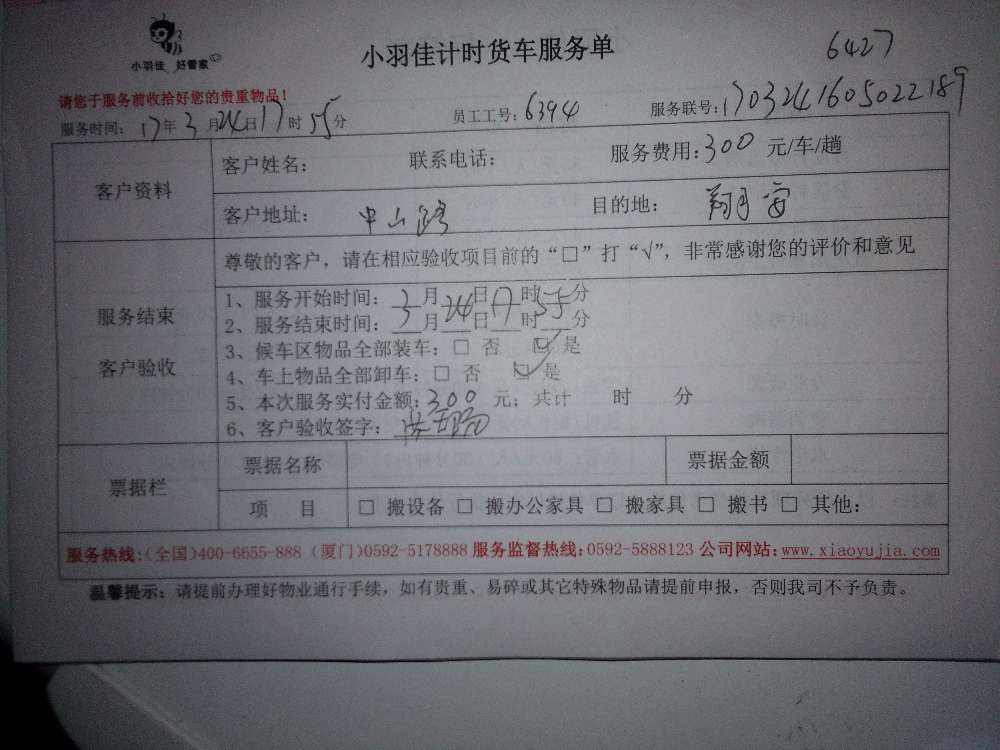 小羽佳 好管家
小羽佳计时货车服务单
6427
请您于服务前收拾好您的贵重物品！
服务时间：17年3月24日17时55分 员工工号：6394 服务联号：1703241605022189
客户资料
客户姓名： 联系电话： 服务费用：300 元/车/趟
客户地址：中山路 目的地：翔安
服务结束
客户验收
尊敬的客户，请在相应验收项目前的“□”打“√”，非常感谢您的评价和意见
1、服务开始时间：3月24日17时55分
2、服务结束时间：__月__日__时__分
3、候车区物品全部装车：□ 否 ☑ 是
4、车上物品全部卸车：□ 否 ☑ 是
5、本次服务实付金额：300 元；共计 时 分
6、客户验收签字：
票据栏
票据名称 票据金额
项 目 □ 搬设备 □ 搬办公家具 □ 搬家具 □ 搬书 □ 其他：
服务热线：（全国）400-6655-888（厦门）0592-5178888 服务监督热线：0592-5888123 公司网站：www.xiaoyujia.com
温馨提示：请提前办理好物业通行手续，如有贵重、易碎或其它特殊物品请提前申报，否则我司不予负责。